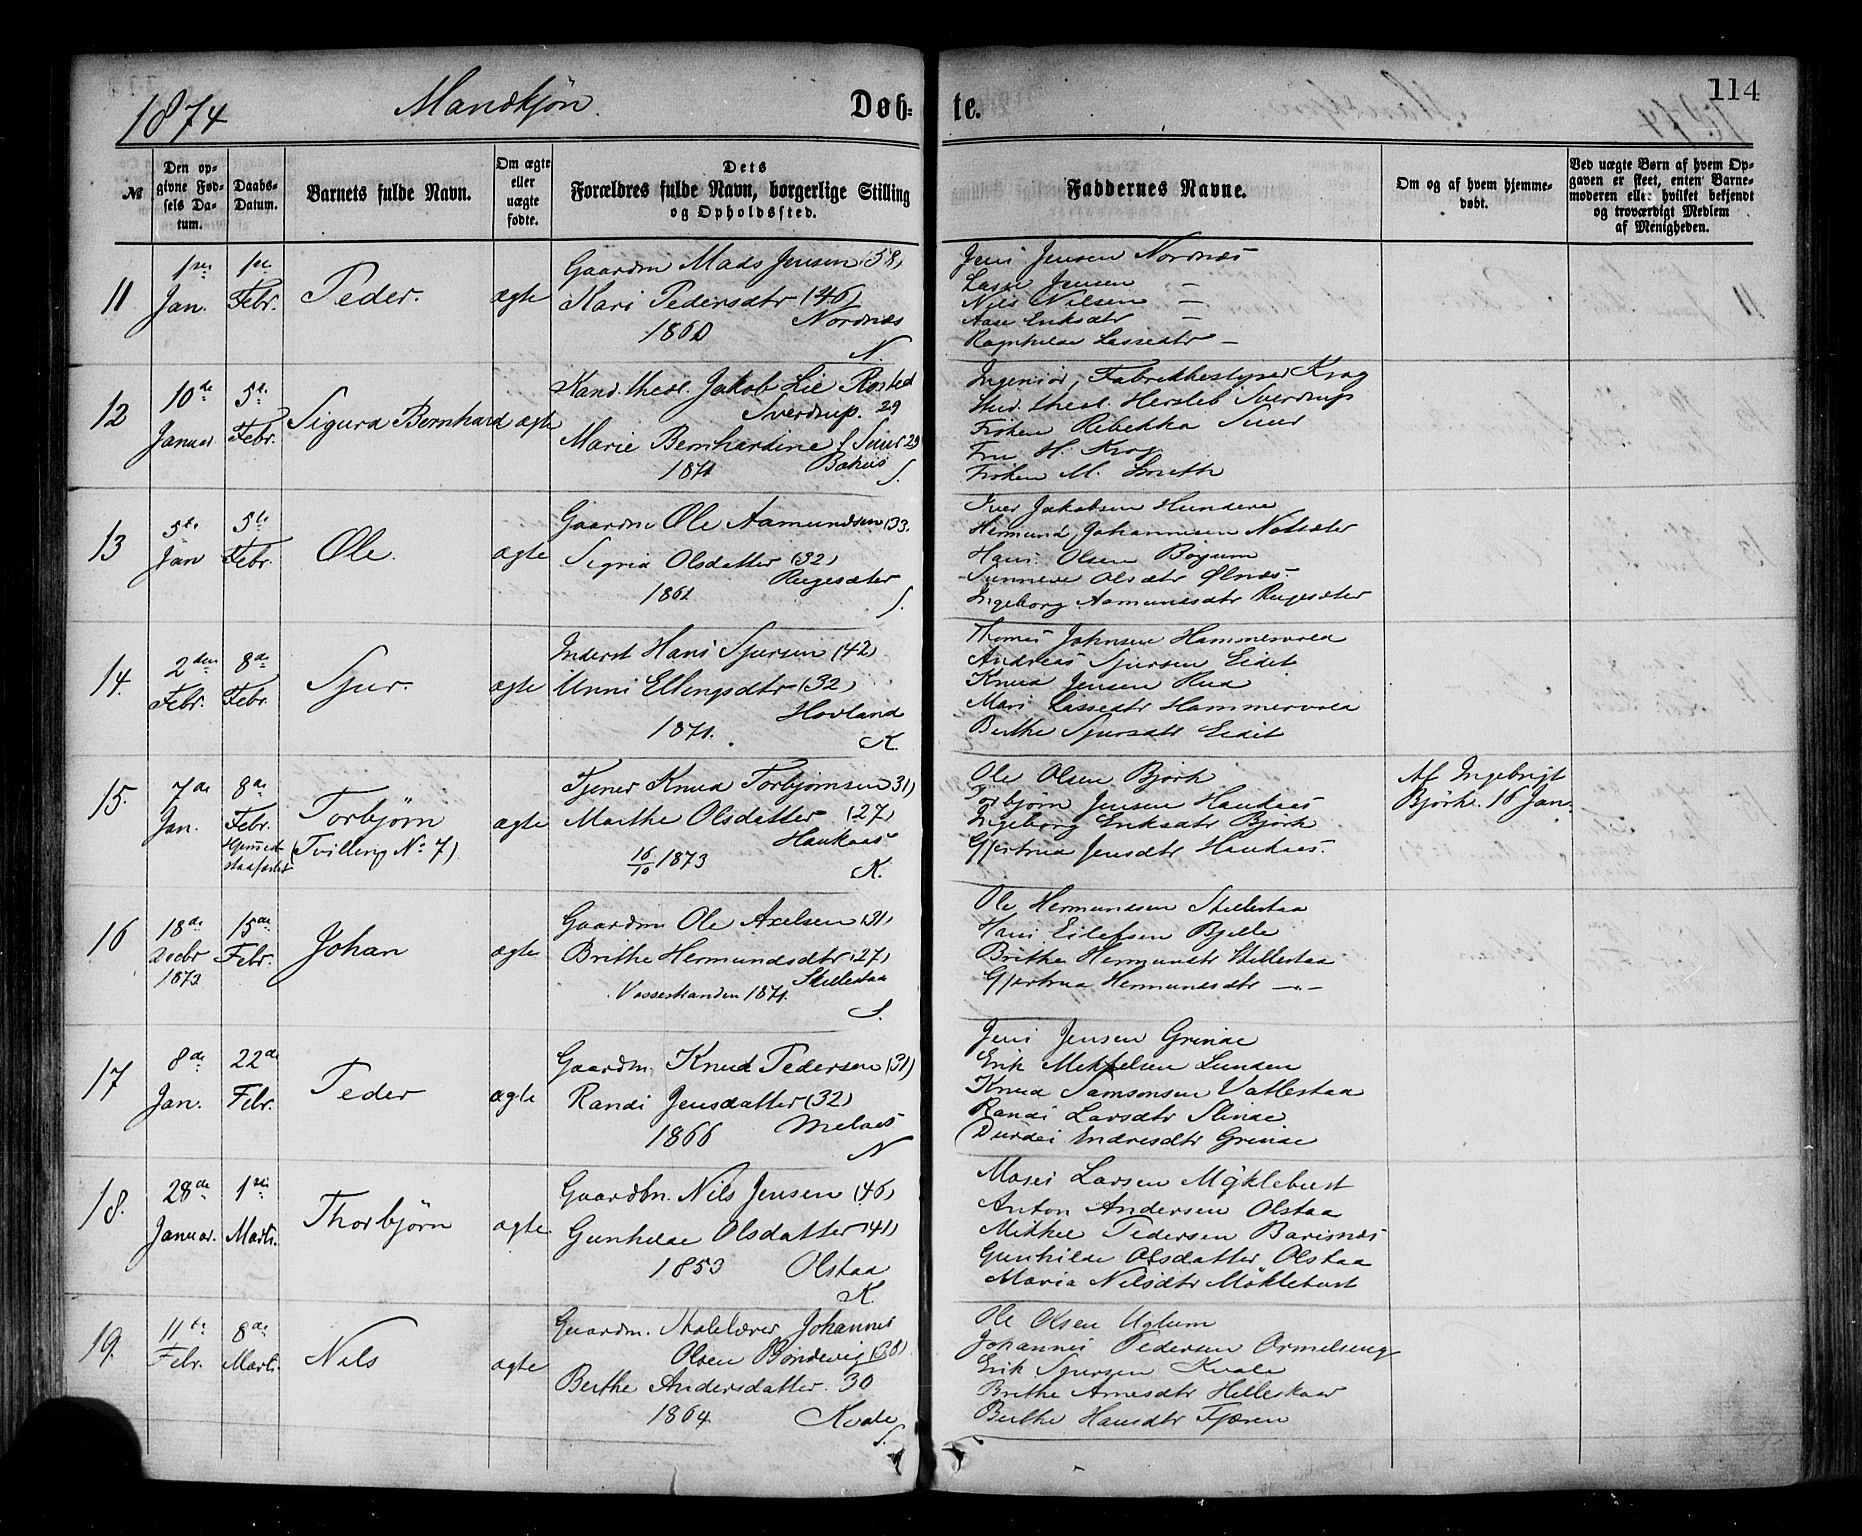 1874 Mandkjøn. Døb- te. 114
№
Den opgivne Fødsels Datum.
Daabs-Datum.
Barnets fulde Navn.
Om ægte eller uægte fødte.
Dets Forældres fulde Navn, borgerlige Stilling og Opholdssted.
Faddernes Navne.
Om og af hvem hjemmedøbt.
Ved uægte Børn af hvem Opgaven er skeet, enten Barnemoderen eller hvilket bekjendt og troværdigt Medlem af Menigheden.
11
1ste Jan.
1ste Febr.
Peder.
ægte
Gaardm Mads Jensen (58)
Kari Pedersdtr (46)
1860 Nordnæs
N.
Jens Jensen Nordnæs
Lasse Jensen —
Nils Nilsen —
Aase Eriksdtr —
Ragnhilde Lassedtr —
12
10de Januar
5te Febr.
Sigurd Bernhard
ægte
Kand. theol. Jakob Lie Rosted
Sverdrup. 29
Marie Bernhardine f. Suur 29
1871 Bahus
S.
Ingeniør, Fabrikbestyrer Krog
Stud. theol. Hersleb Sverdrup
Frøken Rebekka Suur
Fru H. Krog
Frøken M. Smith
13
5te Jan
5te Febr.
Ole.
ægte
Gaardm Ole Aamundsen (33.
Sigrid Olsdatter (32)
1861 Rugesæter
S.
Iver Jakobsen Hundere
Hermund Johannesen Notsæter
Hans Olsen Bøyum
Sunneve Olsdtr Ølnæs.
Ingeborg Aamundsdtr Rugesæter
14.
2den Febr.
8de Febr.
Sjur.
ægte
Inderst Hans Sjursen (42)
Unni Ellingsdtr (32)
1871. Hovland
K.
Thomas Johnsen Hammervold
Andreas Sjursen Eidet
Knud Jensen Rud
Mari Lassedtr Hammervold
Berthe Sjursdtr Eidet
15.
7de Jan.
8de Febr.
Torbjørn
(Tvilling No 7).
ægte
Tjener Knud Torbjørnsen 31)
Marthe Olsdatter (27)
16/10 1873 Haukaas
K.
Ole Olsen Bjørk
Torbjørn Jensen Haukaas
Ingeborg Eriksdtr Bjørk
Gjertrud Jensdtr Haukaas.
Af Ingebrigt
Bjørk. 16 Jan.
16
18de Decbr 1873
15de Febr.
Johan
ægte
Gaardm Ole Axelsen (31)
Brithe Hermundsdtr (27)
Skillestaa
Vossestranden 1871.
S.
Ole Hermundsen Skillestaa
Hans Eilefsen Bjelle
Brithe Hermundsdtr Skillestaa
Gjertrud Hermundsdtr —„—
17
8de Jan.
22de Febr.
Peder
ægte
Gaardm. Knud Pedersen (31)
Randi Jensdatter (32)
1866 Melaas
N
Jens Jensen Grinde
Erik Mikkelsen Lunden
Knud Samsonsen Vatlestaa
Randi Larsdtr Slinde
Durdei Endresdtr Grinde
18.
28de Januar.
1ste Marts.
Thorbjørn
ægte
Gaardbr. Nils Jensen (46)
Gunhilde Olsdatter (41)
1853 Olstaa
K.
Moses Larsen Møklebust
Anton Andersen Olstaa
Mikkel Pedersen Barsnæs
Gunhilde Olsdatter Olstaa
Maria Nilsdtr Møklebust
19.
11te Febr.
8de Marts.
Nils
ægte
Gaardm. Skolelærer Johannes
Olsen Bøndevig (38)
Berthe Andersdatter. 30
1864 Kvale
S.
Ole Olsen Uglum
Johannes Pedersen Ormelseng
Erik Sjursen Kvale
Brithe Arnesdtr Helleskaar
Berthe Hansdtr Fjæren